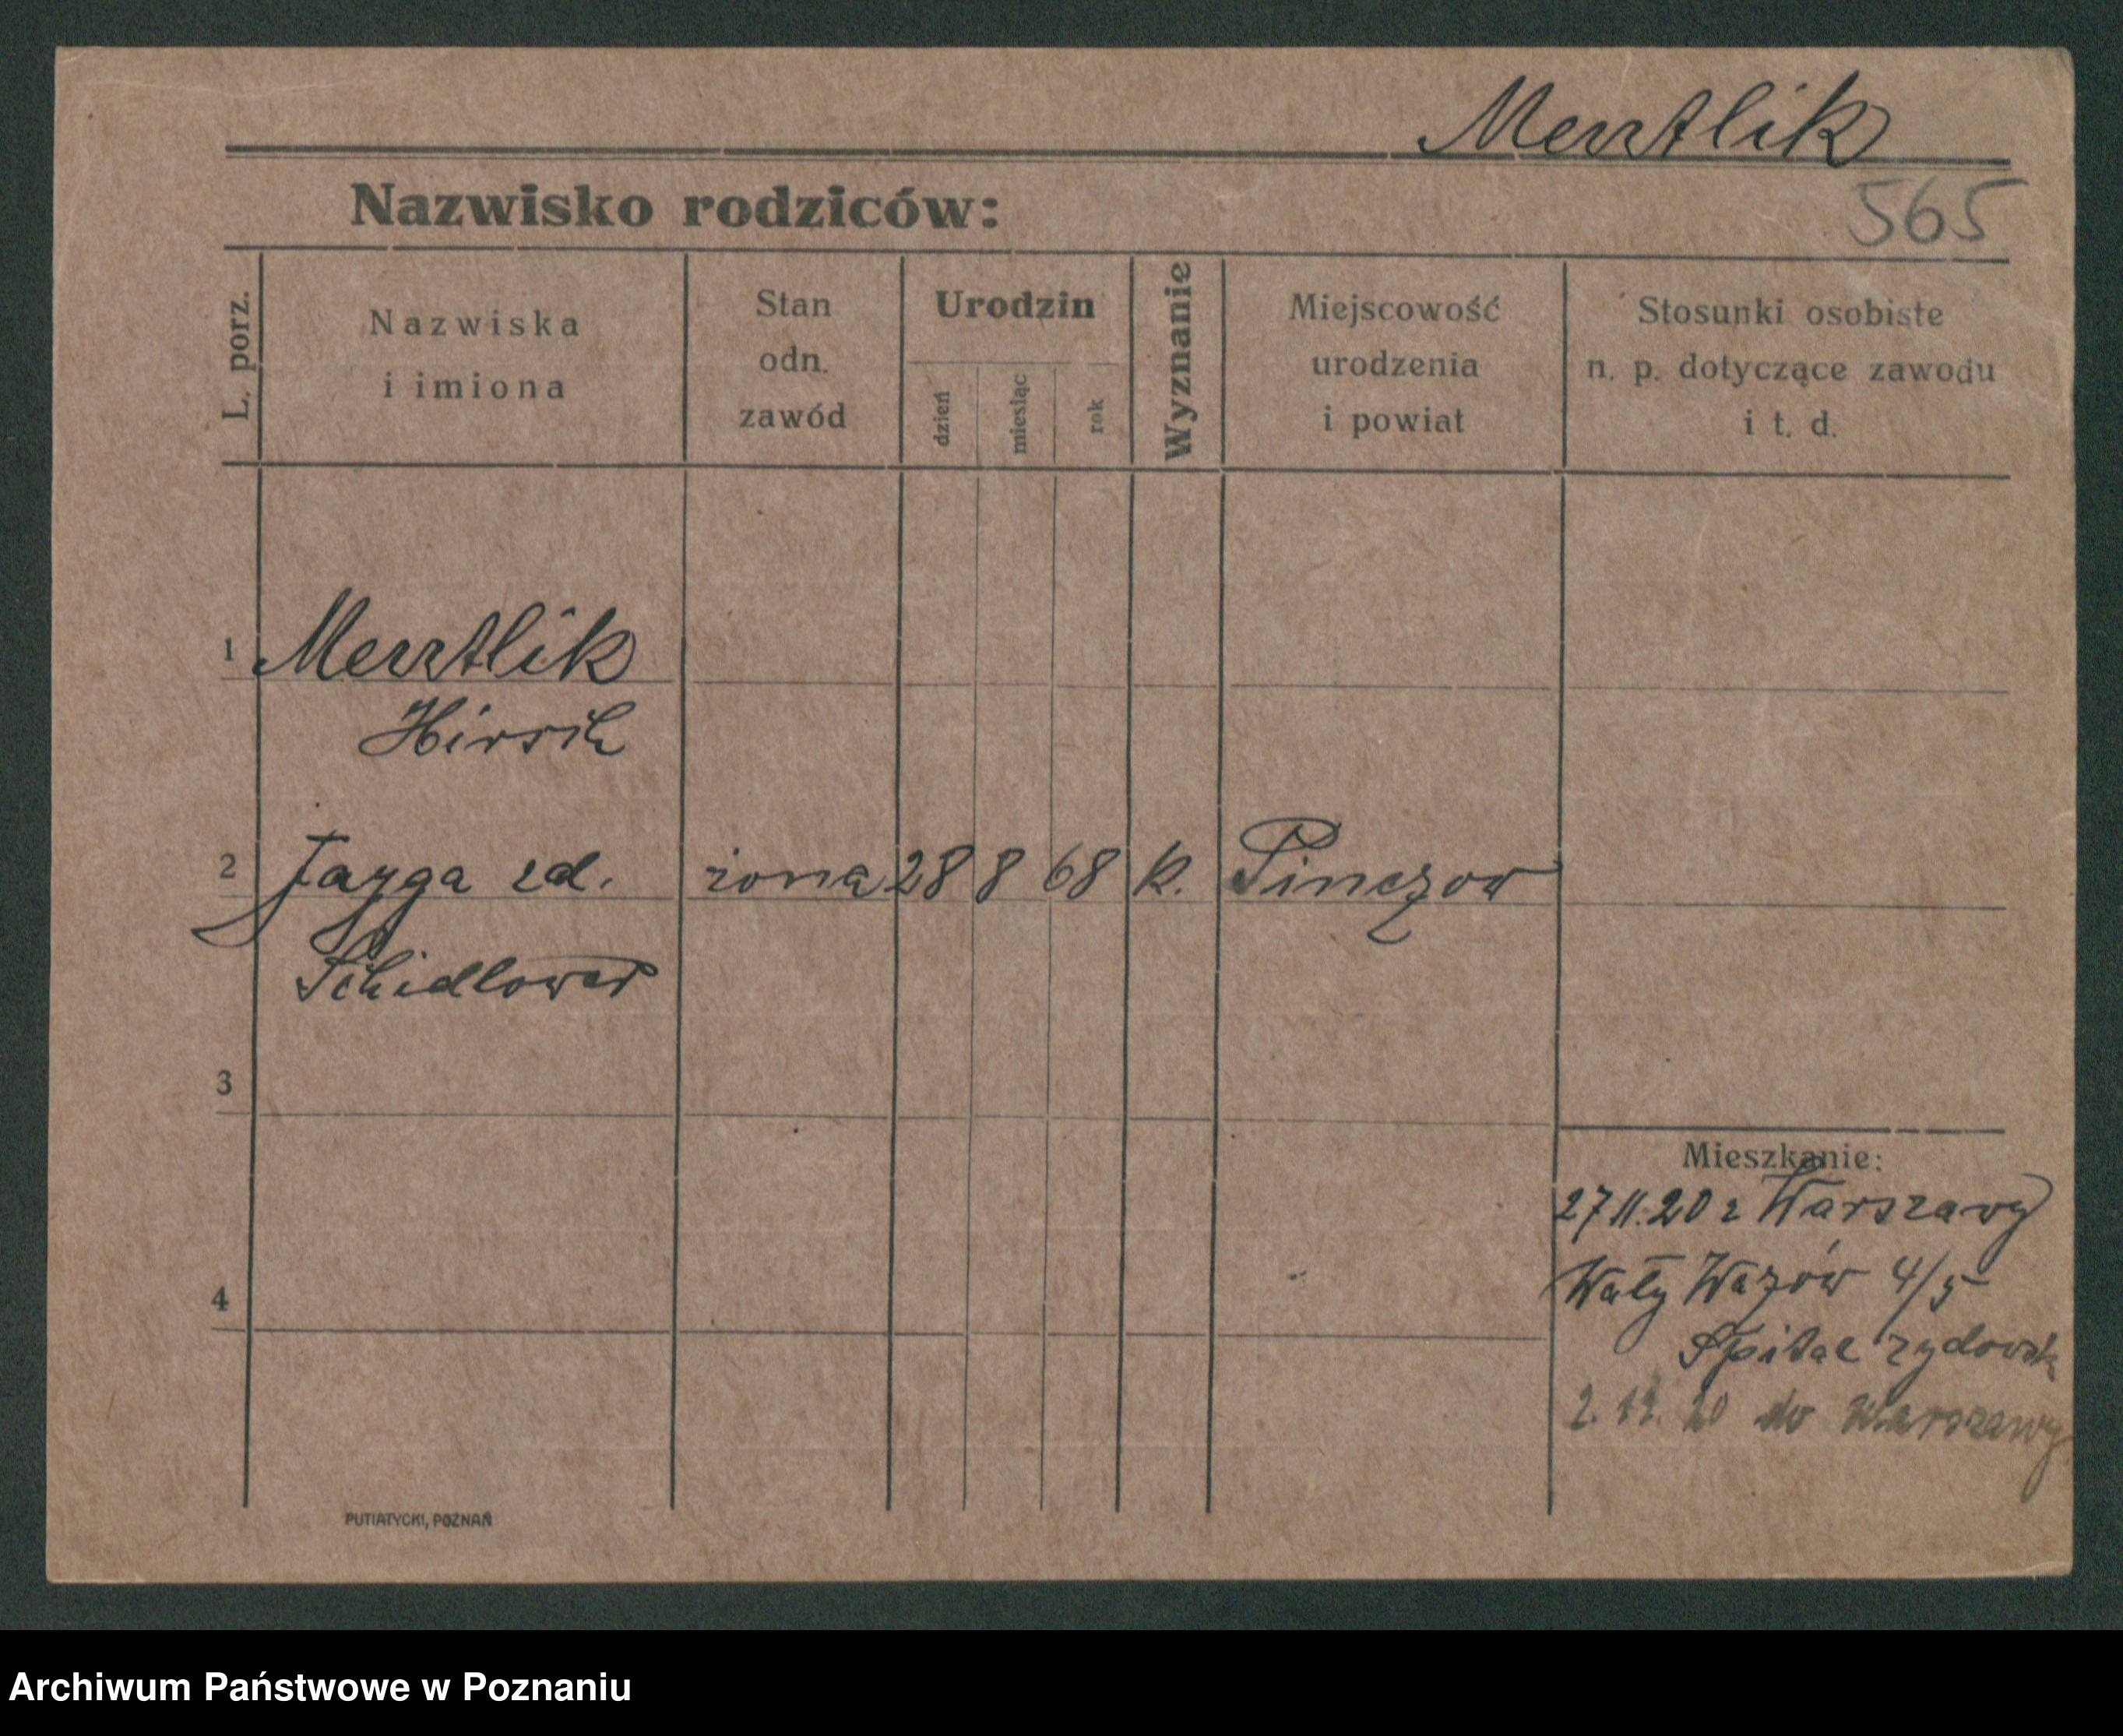 Mertlik
Nazwisko rodziców:
565
L. porz.
Nazwiska
i imiona
Stan
odn.
zawód
Urodzin
dzień
miesiąc
rok
Wyznanie
Miejscowość
urodzenia
i powiat
Stosunki osobiste
n. p. dotyczące zawodu
i t. d.
1 Mertlik
Hirsch
2 Jayga zd. żona 28 8 68 k. Pinczow
Schidlower
3
Mieszkanie:
27 11. 20 z Warszawy
Wały Wazów 4/5
4
Spital żydowsk
2. 12. 20 do Warszawy
PUTIATYCKI, POZNAŃ
Archiwum Państwowe w Poznaniu